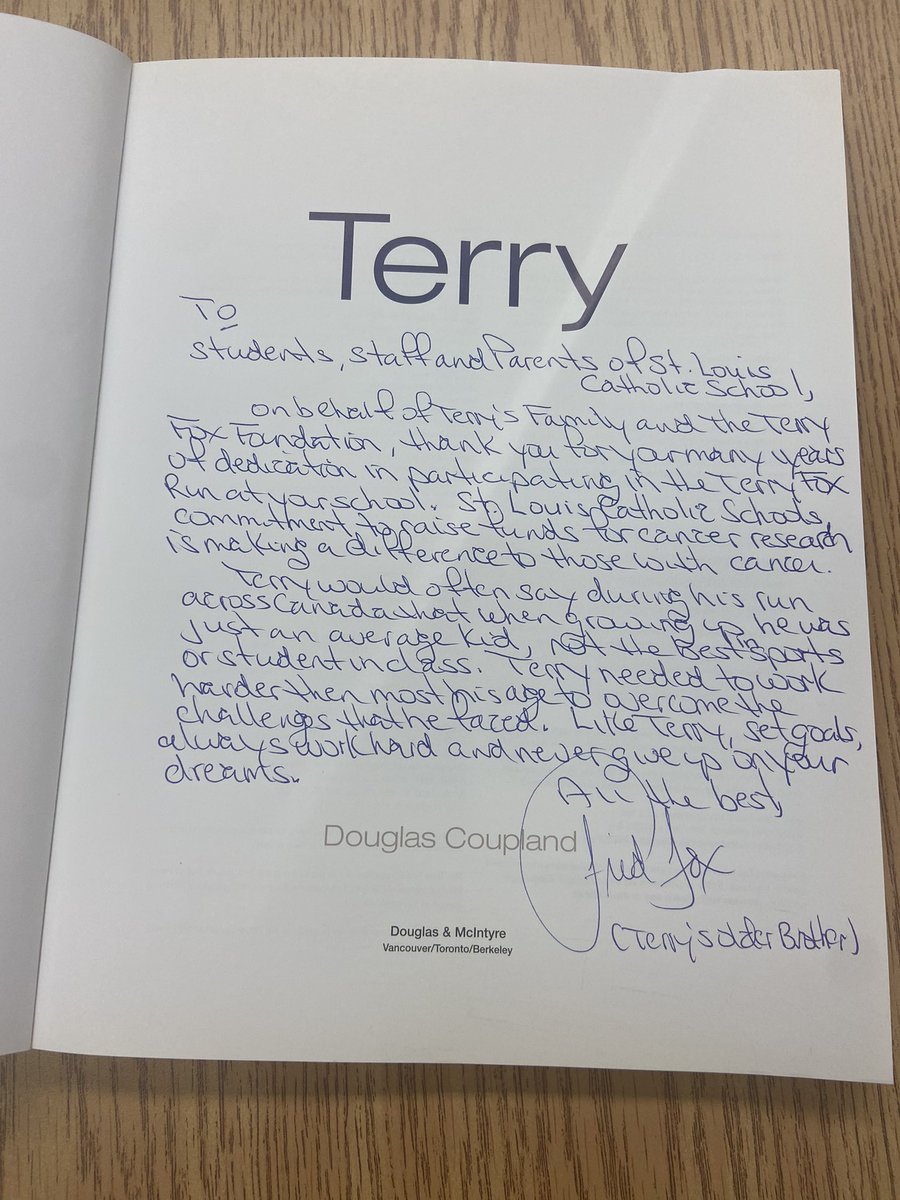 Terry
To
Students, Staff and Parents of St. Louis
Catholic School,
on behalf of Terry's Family and the Terry
Fox Foundation, thank you for your many years
of dedication in participating in the Terry Fox
Run at your school. St. Louis Catholic Schools,
commitment to raise funds for cancer research
is making a difference to those with cancer.
Terry would often say during his run
across Canada that when growing up he was
just an average kid, not the Best in sports
or student in class. Terry needed to work
harder then most his age to overcome the
challenges that he faced. Like Terry, set goals,
always work hard and never give up on your
dreams.
All the best,
Douglas Coupland
Fred Fox
(Terry's older Brother)
Douglas & McIntyre
Vancouver/Toronto/Berkeley